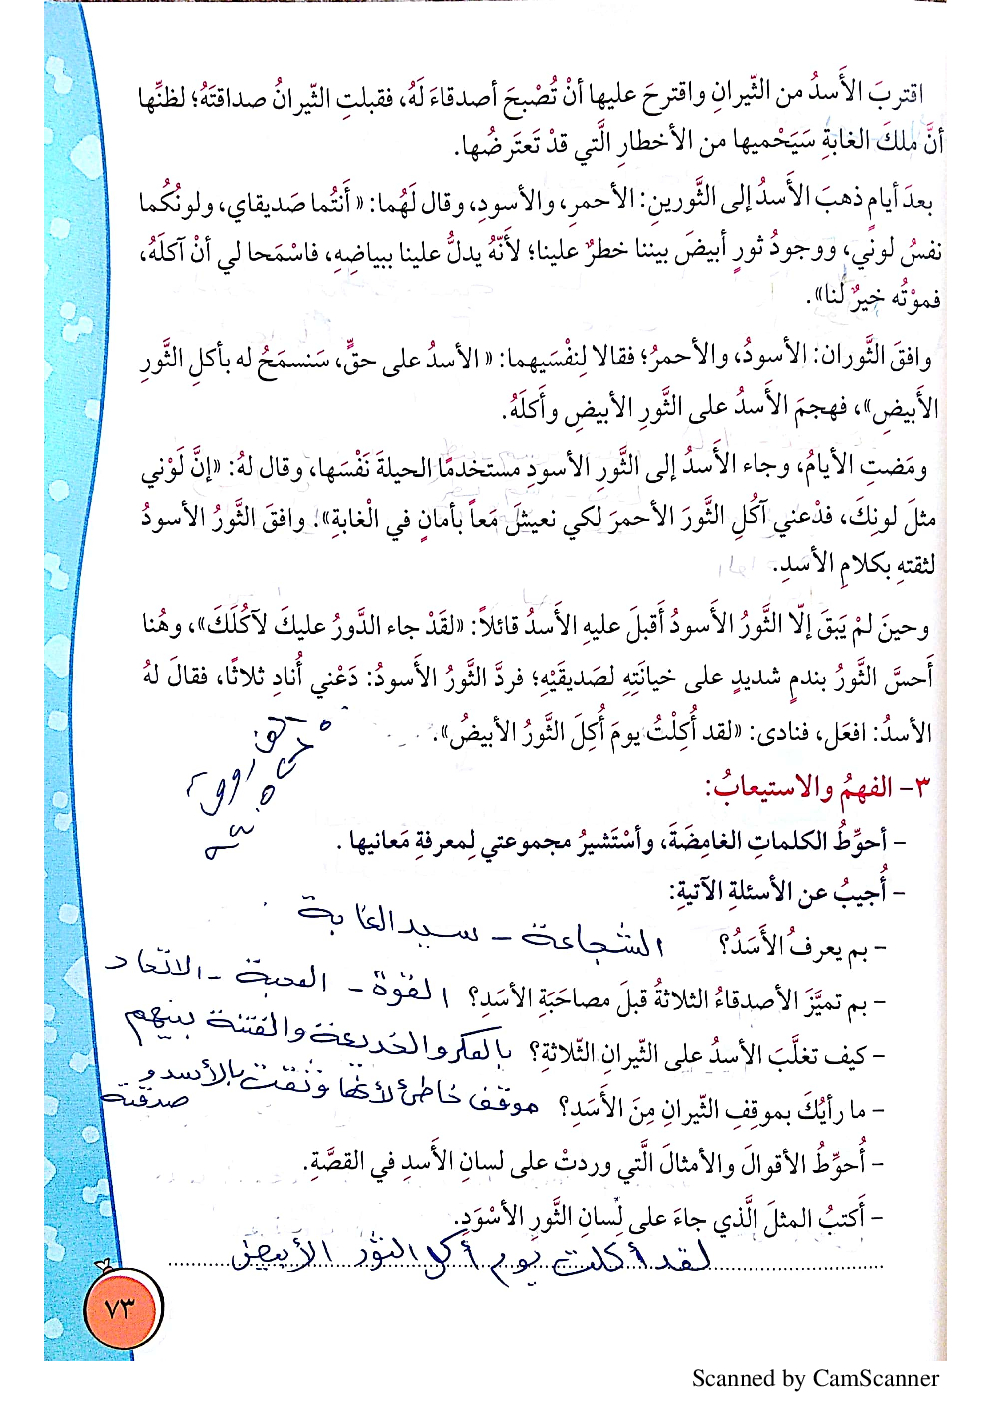 اقتربَ الأَسدُ من الثّيرانِ واقترحَ عليها أنْ تُصْبحَ أصدقاءَ لَهُ، فقبلتِ الثّيرانُ صداقتَهُ؛ لظنِّها
أنَّ ملكَ الغابةِ سَيَحْميها من الأخطارِ الَّتي قدْ تَعتَرضُها.
بعدَ أيامٍ ذهبَ الأَسدُ إلى الثَّورينِ: الأحمرِ، والأسودِ، وقال لَهُما: «أَنتُما صَديقاي، ولونُكُما
نفسُ لوني، ووجودُ ثورٍ أبيضَ بيننا خطرٌ علينا؛ لأنّهُ يدلُّ علينا ببياضِهِ، فاسْمَحا لي أنْ آكلَهُ،
فموْتُه خيرٌ لنا».
وافقَ الثَّوران: الأسودُ، والأحمرُ؛ فقالا لِنفْسَيهما: «الأسدُ على حقٍّ، سَنسمَحُ له بأكلِ الثَّورِ
الأَبيضِ»، فهجمَ الأَسدُ على الثَّورِ الأبيضِ وأَكلَهُ.
ومَضتِ الأيامُ، وجاء الأَسدُ إلى الثَّورِ الأسودِ مستخدمًا الحيلةَ نَفْسَها، وقال لهُ: «إنَّ لَوْني
مثلَ لونِكَ، فدْعني آكُلِ الثَّورَ الأحمرَ لكي نعيشَ مَعاً بأمانٍ في الْغابةِ». وافقَ الثَّورُ الأسودُ
لثقتهِ بكلامِ الأسدِ.
وحينَ لمْ يَبقَ إلّا الثَّورُ الأَسودُ أَقبلَ عليهِ الأَسدُ قائلاً: «لقَدْ جاء الدَّورُ عليكَ لآكُلَكَ»، وهُنا
أَحسَّ الثَّورُ بندمٍ شديدٍ على خيانَتِهِ لصَديقَيْهِ؛ فردَّ الثَّورُ الأَسودُ: دَعْني أُنادِ ثلاثًا، فقالَ لهُ
الأسدُ: افعَل، فنادى: «لقد أُكِلْتُ يومَ أُكِلَ الثَّورُ الأبيضُ».
٣- الفهمُ والاستيعابُ:
- أحوِّطُ الكلماتِ الغامِضَةَ، وأسْتَشيرُ مجموعتي لِمعرفةِ مَعانيها.
- أُجيبُ عن الأسئلةِ الآتيةِ:
- بم يعرفُ الأَسَدُ؟ الشجاعة - سيد الغابة
- بم تميَّزَ الأصدقاءُ الثلاثةُ قبلَ مصاحَبَةِ الأسَدِ؟ القوة - المحبة - الاتحاد
- كيف تغلَّبَ الأسدُ على الثّيرانِ الثّلاثةِ؟ بالمكر والخديعة والفتنة بينهم
- ما رأيُكَ بموقِفِ الثّيرانِ مِنَ الأَسَدِ؟ موقف خاطئ لأنها وثقت بالأسد و صدقته
- أُحوِّطُ الأقوالَ والأمثالَ الَّتي وردتْ على لسانِ الأَسدِ في القصَّةِ.
- أَكتبُ المثلَ الَّذي جاءَ على لِسانِ الثَّورِ الأسْوَدِ.
لقد أكلت يوم أكل الثور الأبيض
٧٣
Scanned by CamScanner